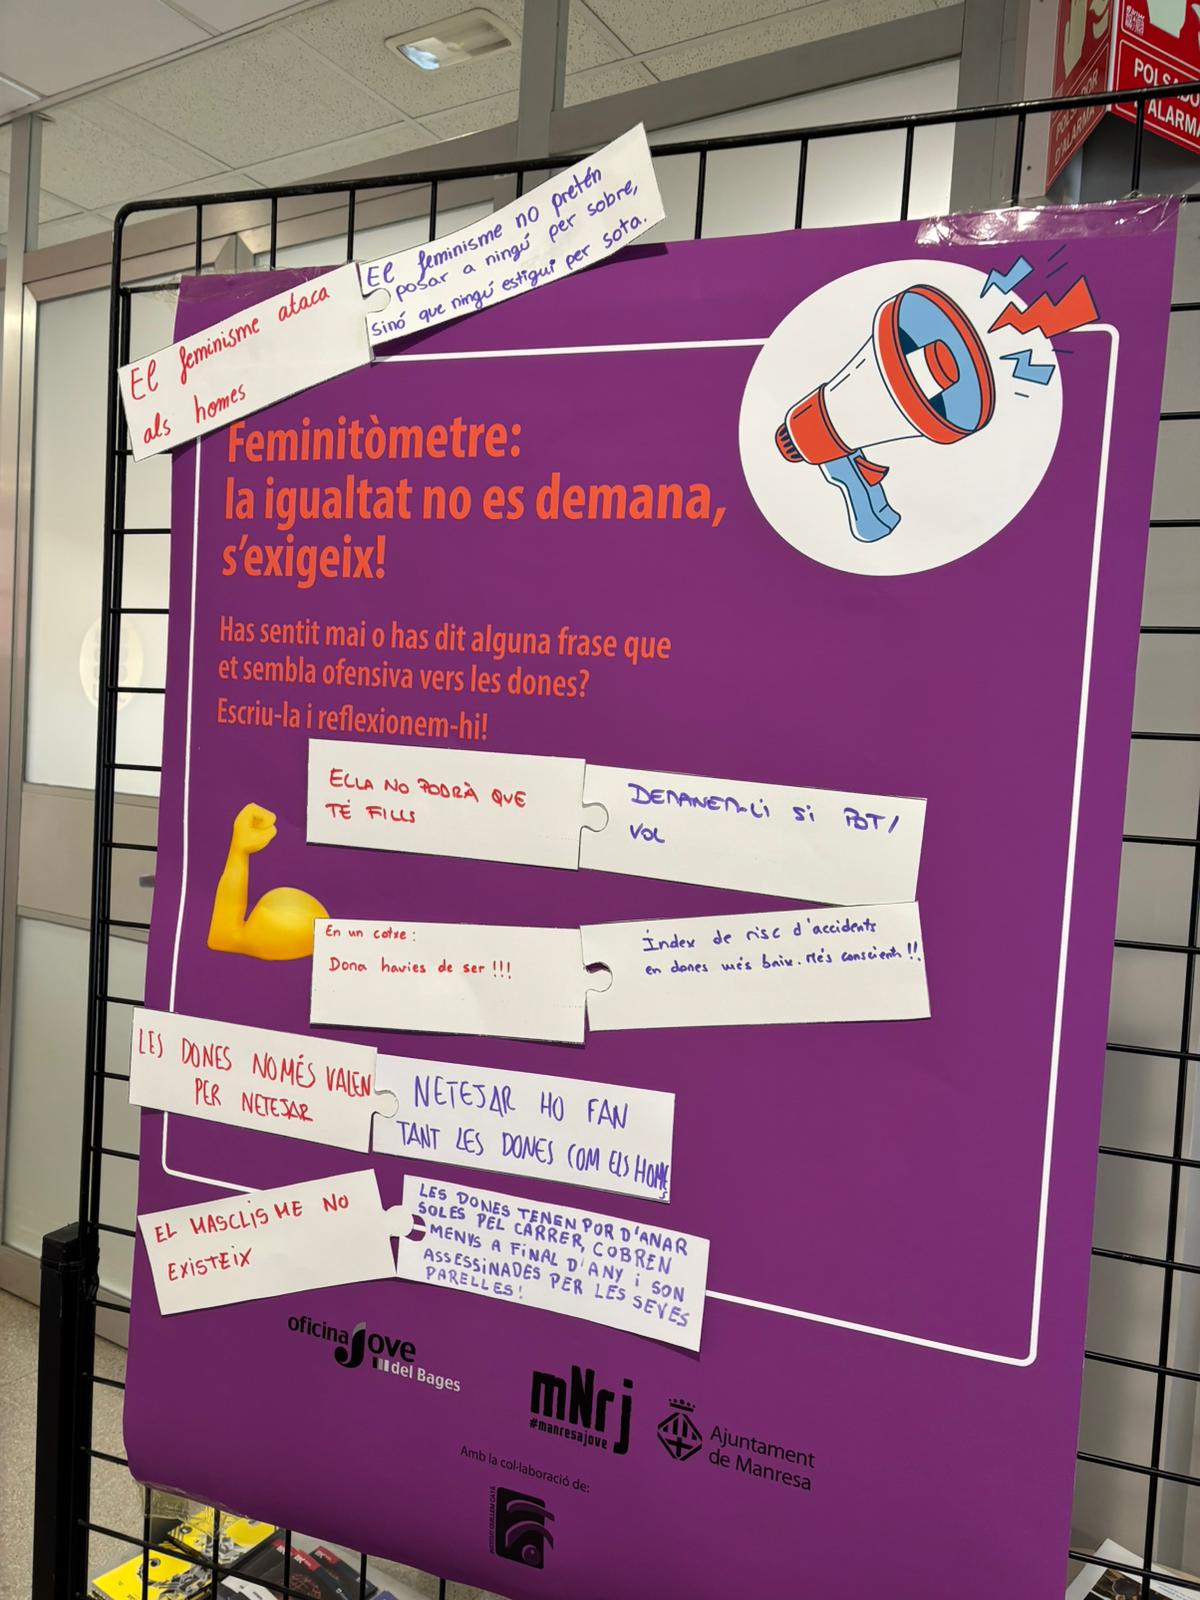 POLSADOR
D'ALARMA
POLSADO
D'ALARMA
El feminisme ataca
als homes
El feminisme no pretén
posar a ningú per sobre,
sinó que ningú estigui per sota.
Feminitòmetre:
la igualtat no es demana,
s'exigeix!
Has sentit mai o has dit alguna frase que
et sembla ofensiva vers les dones?
Escriu-la i reflexionem-hi!
ELLA NO PODRÀ QUE
TÉ FILLS
DEMANEM-LI SI POT/
VOL
En un cotxe:
Dona havies de ser!!!
Índex de risc d'accidents
en dones més baix. Més conscients!!
LES DONES NOMÉS VALEN
PER NETEJAR
NETEJAR HO FAN
TANT LES DONES COM ELS HOMES
EL MASCLISME NO
EXISTEIX
LES DONES TENEN POR D'ANAR
SOLES PEL CARRER, COBREN
MENYS A FINAL D'ANY I SÓN
ASSESSINADES PER LES SEVES
PARELLES!
oficina Jove
del Bages
mNrj
#manresajove
Ajuntament
de Manresa
Amb la col·laboració de:
INSTITUT GUILLEM CATÀ